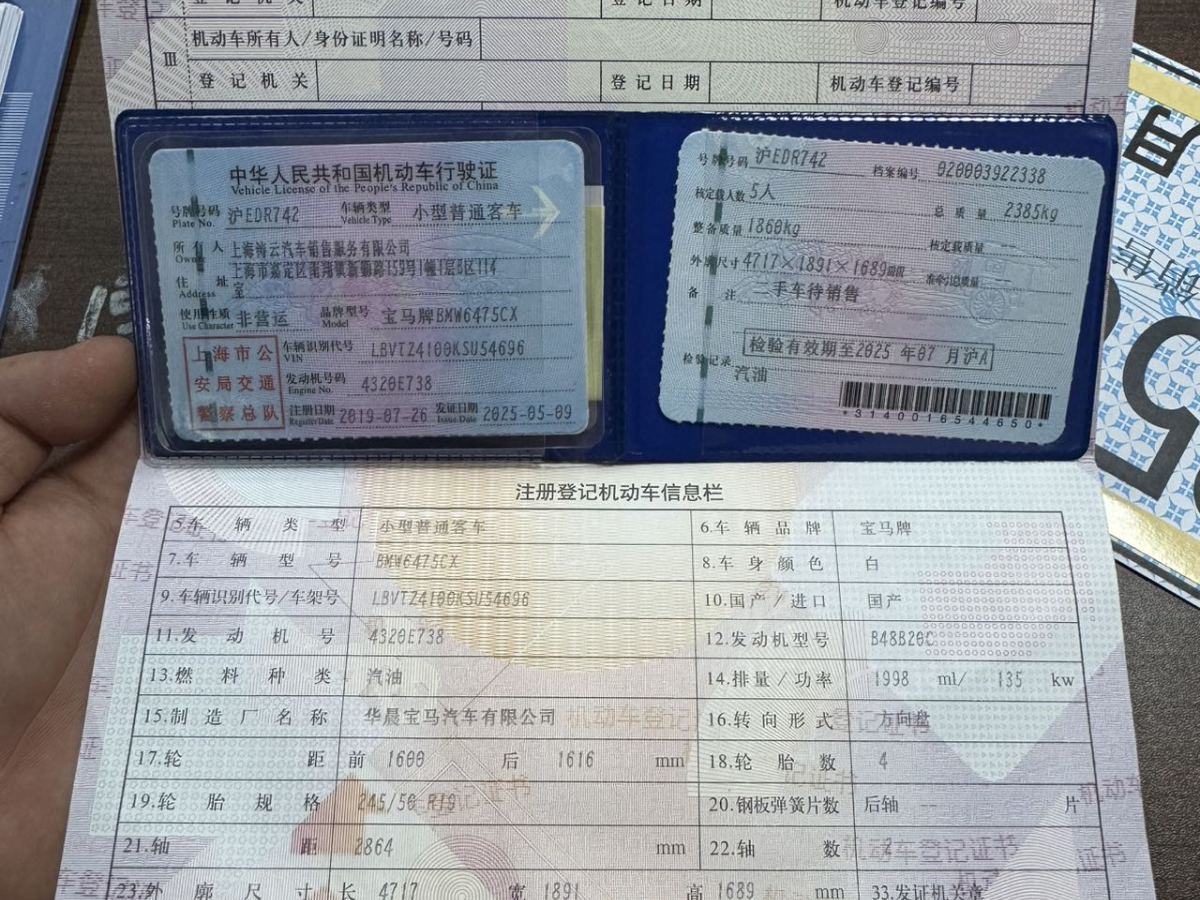 登记机关 登记日期 机动车登记编号
Ⅲ
机动车所有人/身份证明名称/号码
登记机关 登记日期 机动车登记编号
中华人民共和国机动车行驶证
Vehicle License of the People's Republic of China
号牌号码 沪EDR742 车辆类型 小型普通客车
Plate No. Vehicle Type
所有人 上海鸿云汽车销售服务有限公司
Owner
住址 上海市嘉定区南翔镇新勤路159号1幢1层B区114室
Address
使用性质 非营运 品牌型号 宝马牌BMW6475CX
Use Character Model
上海市公安局交通警察总队
车辆识别代号 LBVTZ4100KSU54696
VIN
发动机号码 4320E738
Engine No.
注册日期 2019-07-26 发证日期 2025-05-09
Register Date Issue Date
号牌号码 沪EDR742 档案编号 020003922338
核定载人数 5人 总质量 2385kg
整备质量 1860kg 核定载质量 --
外廓尺寸 4717×1891×1689mm 准牵引总质量 --
备注 二手车待销售
检验记录 检验有效期至2025年07月沪A
汽油
*3140016544650*
注册登记机动车信息栏
5.车辆类型 小型普通客车 6.车辆品牌 宝马牌
7.车辆型号 BMW6475CX 8.车身颜色 白
9.车辆识别代号/车架号 LBVTZ4100KSU54696 10.国产/进口 国产
11.发动机号 4320E738 12.发动机型号 B48B20C
13.燃料种类 汽油 14.排量/功率 1998 ml/ 135 kw
15.制造厂名称 华晨宝马汽车有限公司 16.转向形式 方向盘
17.轮距 前 1600 后 1616 mm 18.轮胎数 4
19.轮胎规格 245/50 R19 20.钢板弹簧片数 后轴 -- 片
21.轴距 2864 mm 22.轴数 2
23.外廓尺寸 长 4717 宽 1891 高 1689 mm 33.发证机关章